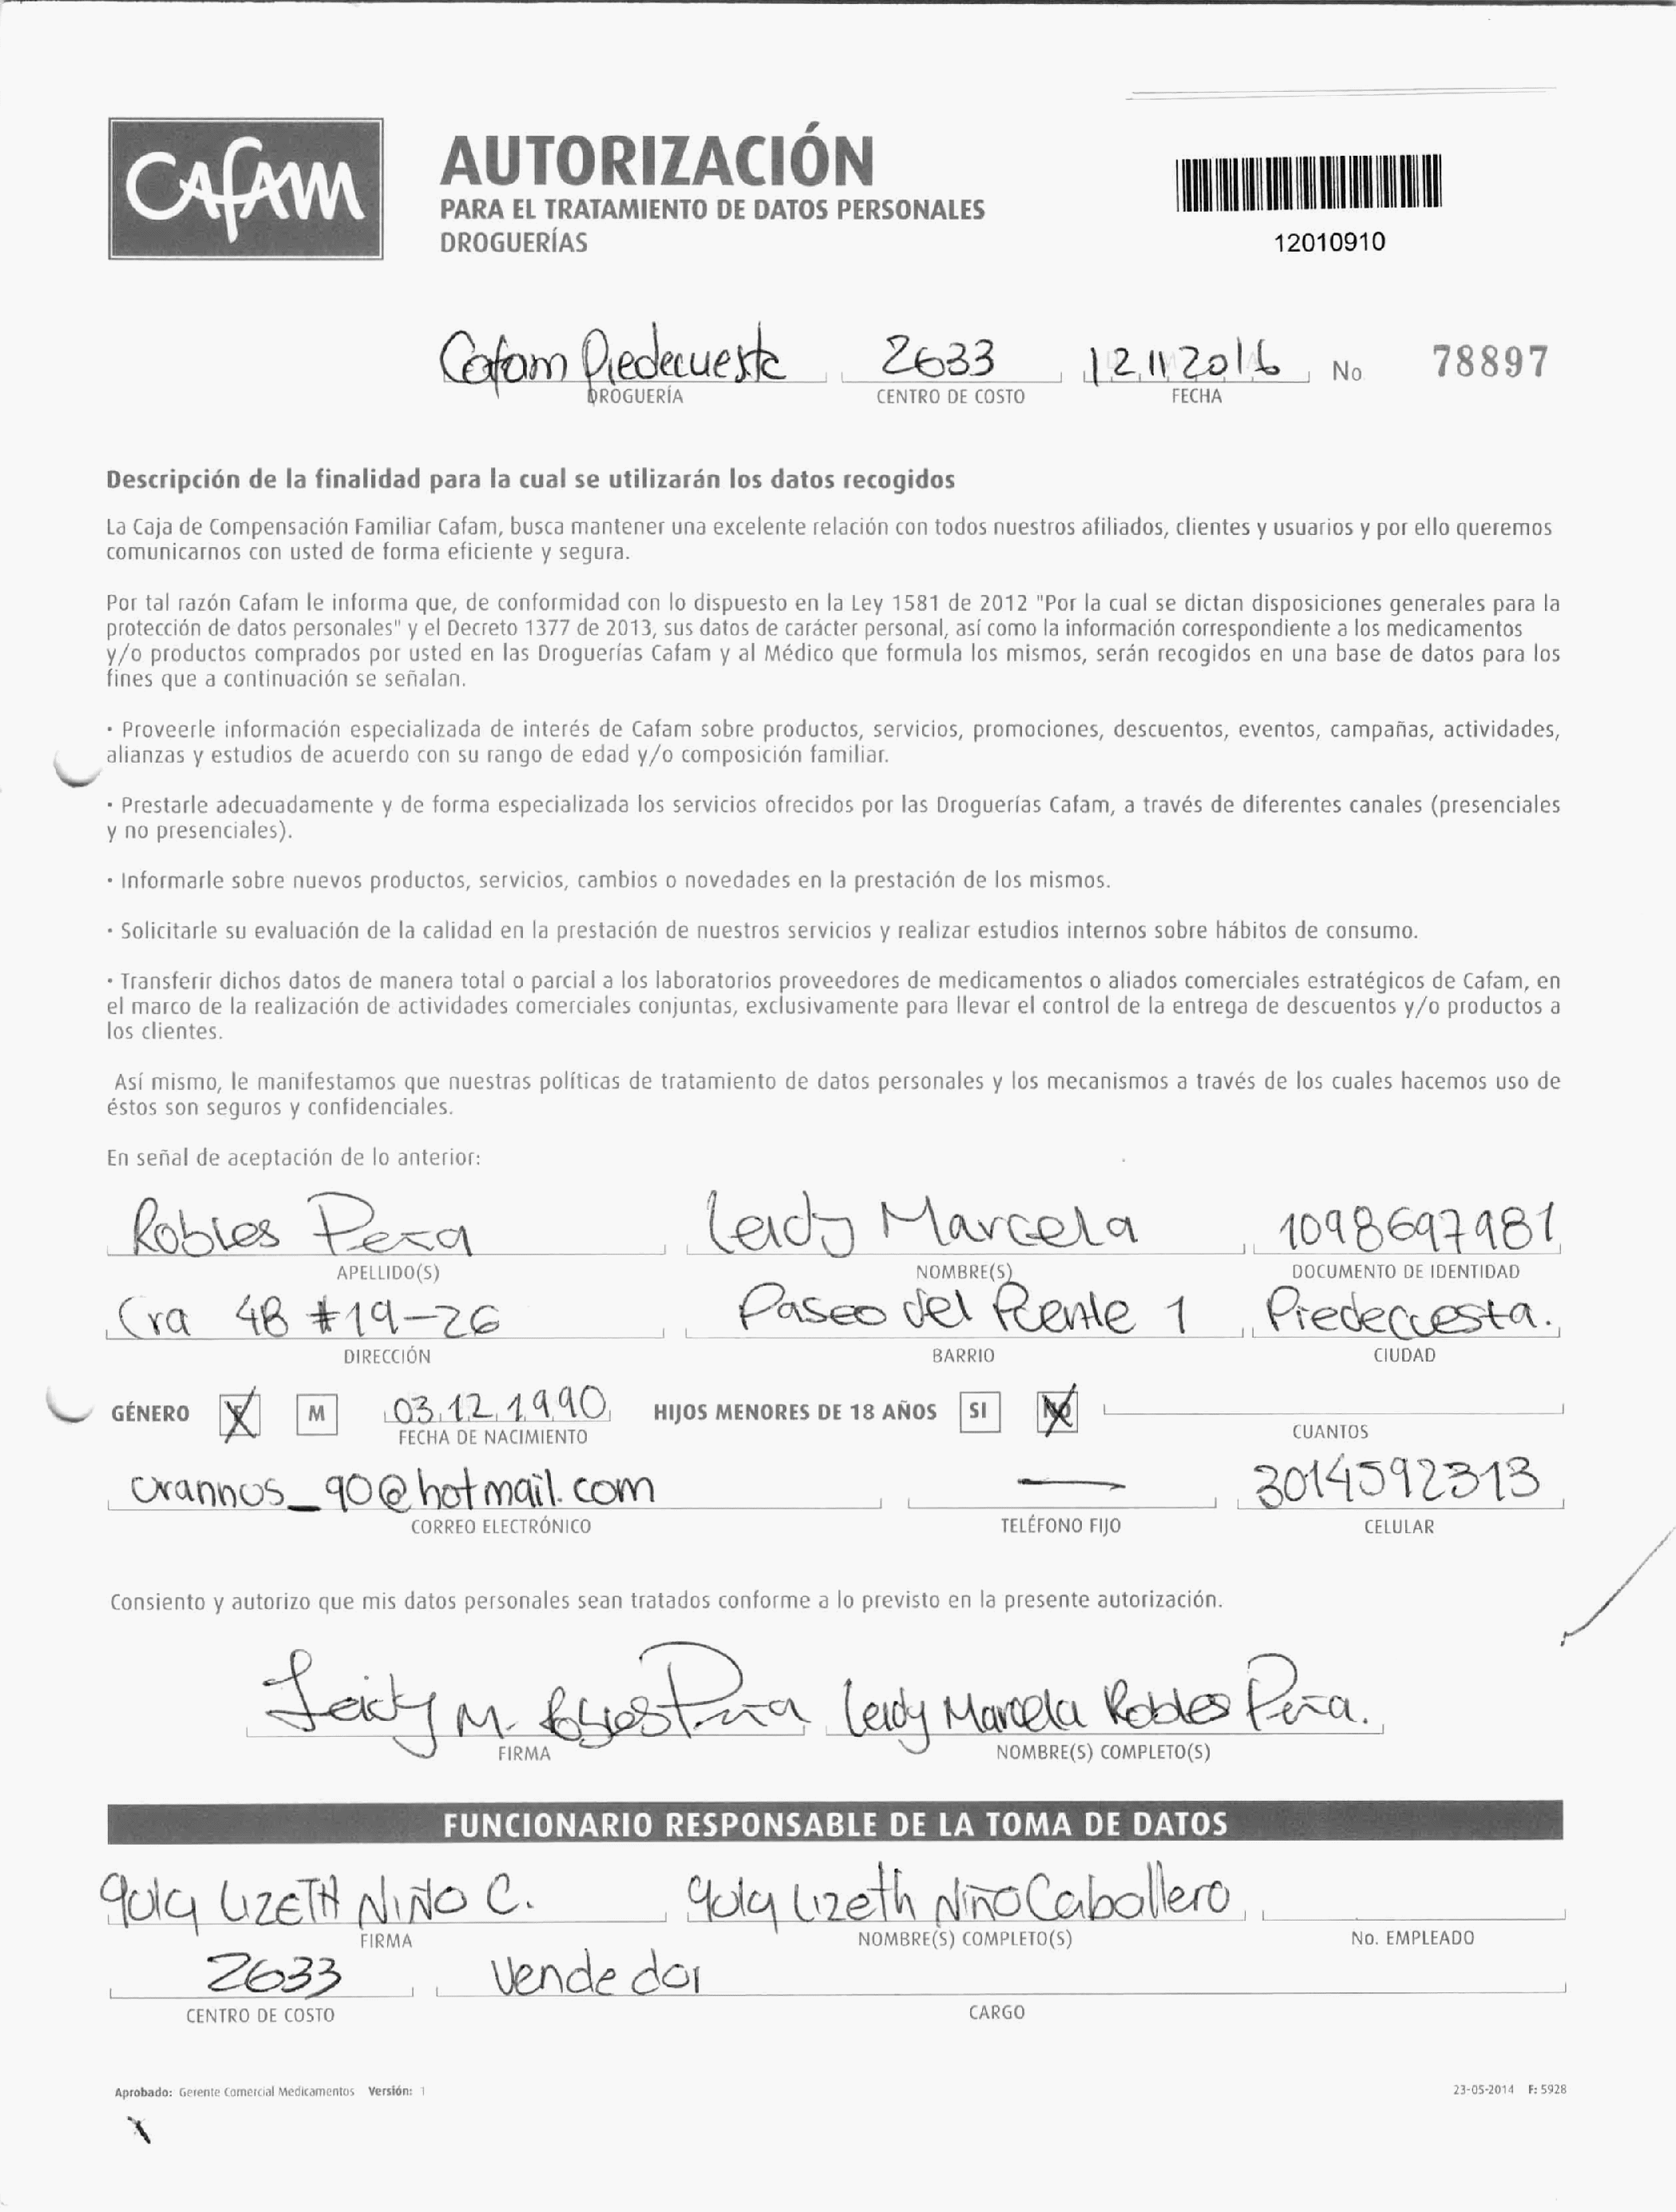 CAFAM
AUTORIZACIÓN
PARA EL TRATAMIENTO DE DATOS PERSONALES
DROGUERÍAS
12010910
Cafam Piedecuesta 2633 12 11 2016 No 78897
DROGUERÍA CENTRO DE COSTO FECHA
Descripción de la finalidad para la cual se utilizarán los datos recogidos
La Caja de Compensación Familiar Cafam, busca mantener una excelente relación con todos nuestros afiliados, clientes y usuarios y por ello queremos
comunicarnos con usted de forma eficiente y segura.
Por tal razón Cafam le informa que, de conformidad con lo dispuesto en la Ley 1581 de 2012 "Por la cual se dictan disposiciones generales para la
protección de datos personales" y el Decreto 1377 de 2013, sus datos de carácter personal, así como la información correspondiente a los medicamentos
y/o productos comprados por usted en las Droguerías Cafam y al Médico que formula los mismos, serán recogidos en una base de datos para los
fines que a continuación se señalan.
· Proveerle información especializada de interés de Cafam sobre productos, servicios, promociones, descuentos, eventos, campañas, actividades,
alianzas y estudios de acuerdo con su rango de edad y/o composición familiar.
· Prestarle adecuadamente y de forma especializada los servicios ofrecidos por las Droguerías Cafam, a través de diferentes canales (presenciales
y no presenciales).
· Informarle sobre nuevos productos, servicios, cambios o novedades en la prestación de los mismos.
· Solicitarle su evaluación de la calidad en la prestación de nuestros servicios y realizar estudios internos sobre hábitos de consumo.
· Transferir dichos datos de manera total o parcial a los laboratorios proveedores de medicamentos o aliados comerciales estratégicos de Cafam, en
el marco de la realización de actividades comerciales conjuntas, exclusivamente para llevar el control de la entrega de descuentos y/o productos a
los clientes.
Así mismo, le manifestamos que nuestras políticas de tratamiento de datos personales y los mecanismos a través de los cuales hacemos uso de
éstos son seguros y confidenciales.
En señal de aceptación de lo anterior:
Robles Peña Leidy Marcela 1098697981
APELLIDO(S) NOMBRE(S) DOCUMENTO DE IDENTIDAD
Cra 4B #19-26 Paseo del Puente 1 Piedecuesta.
DIRECCIÓN BARRIO CIUDAD
GÉNERO F M 03.12.1990 HIJOS MENORES DE 18 AÑOS SI NO
FECHA DE NACIMIENTO CUANTOS
urannus_90@hotmail.com — 3014592313
CORREO ELECTRÓNICO TELÉFONO FIJO CELULAR
Consiento y autorizo que mis datos personales sean tratados conforme a lo previsto en la presente autorización.
Leidy M. Robles Peña Leidy Marcela Robles Peña.
FIRMA NOMBRE(S) COMPLETO(S)
FUNCIONARIO RESPONSABLE DE LA TOMA DE DATOS
LIZETH NIÑO C. Lizeth Niño Caballero
FIRMA NOMBRE(S) COMPLETO(S) No. EMPLEADO
2633 Vendedor
CENTRO DE COSTO CARGO
Aprobado: Gerente Comercial Medicamentos Versión: 1 23-05-2014 F: 5928